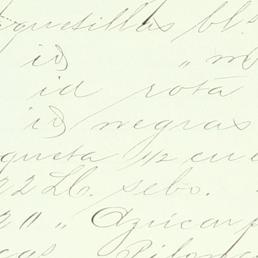 quetillas bl.s
id " m
id rota
id negras
queta 1/2 cu
2 Lb. sebo.
20 " Azúcar p
cas Pilon